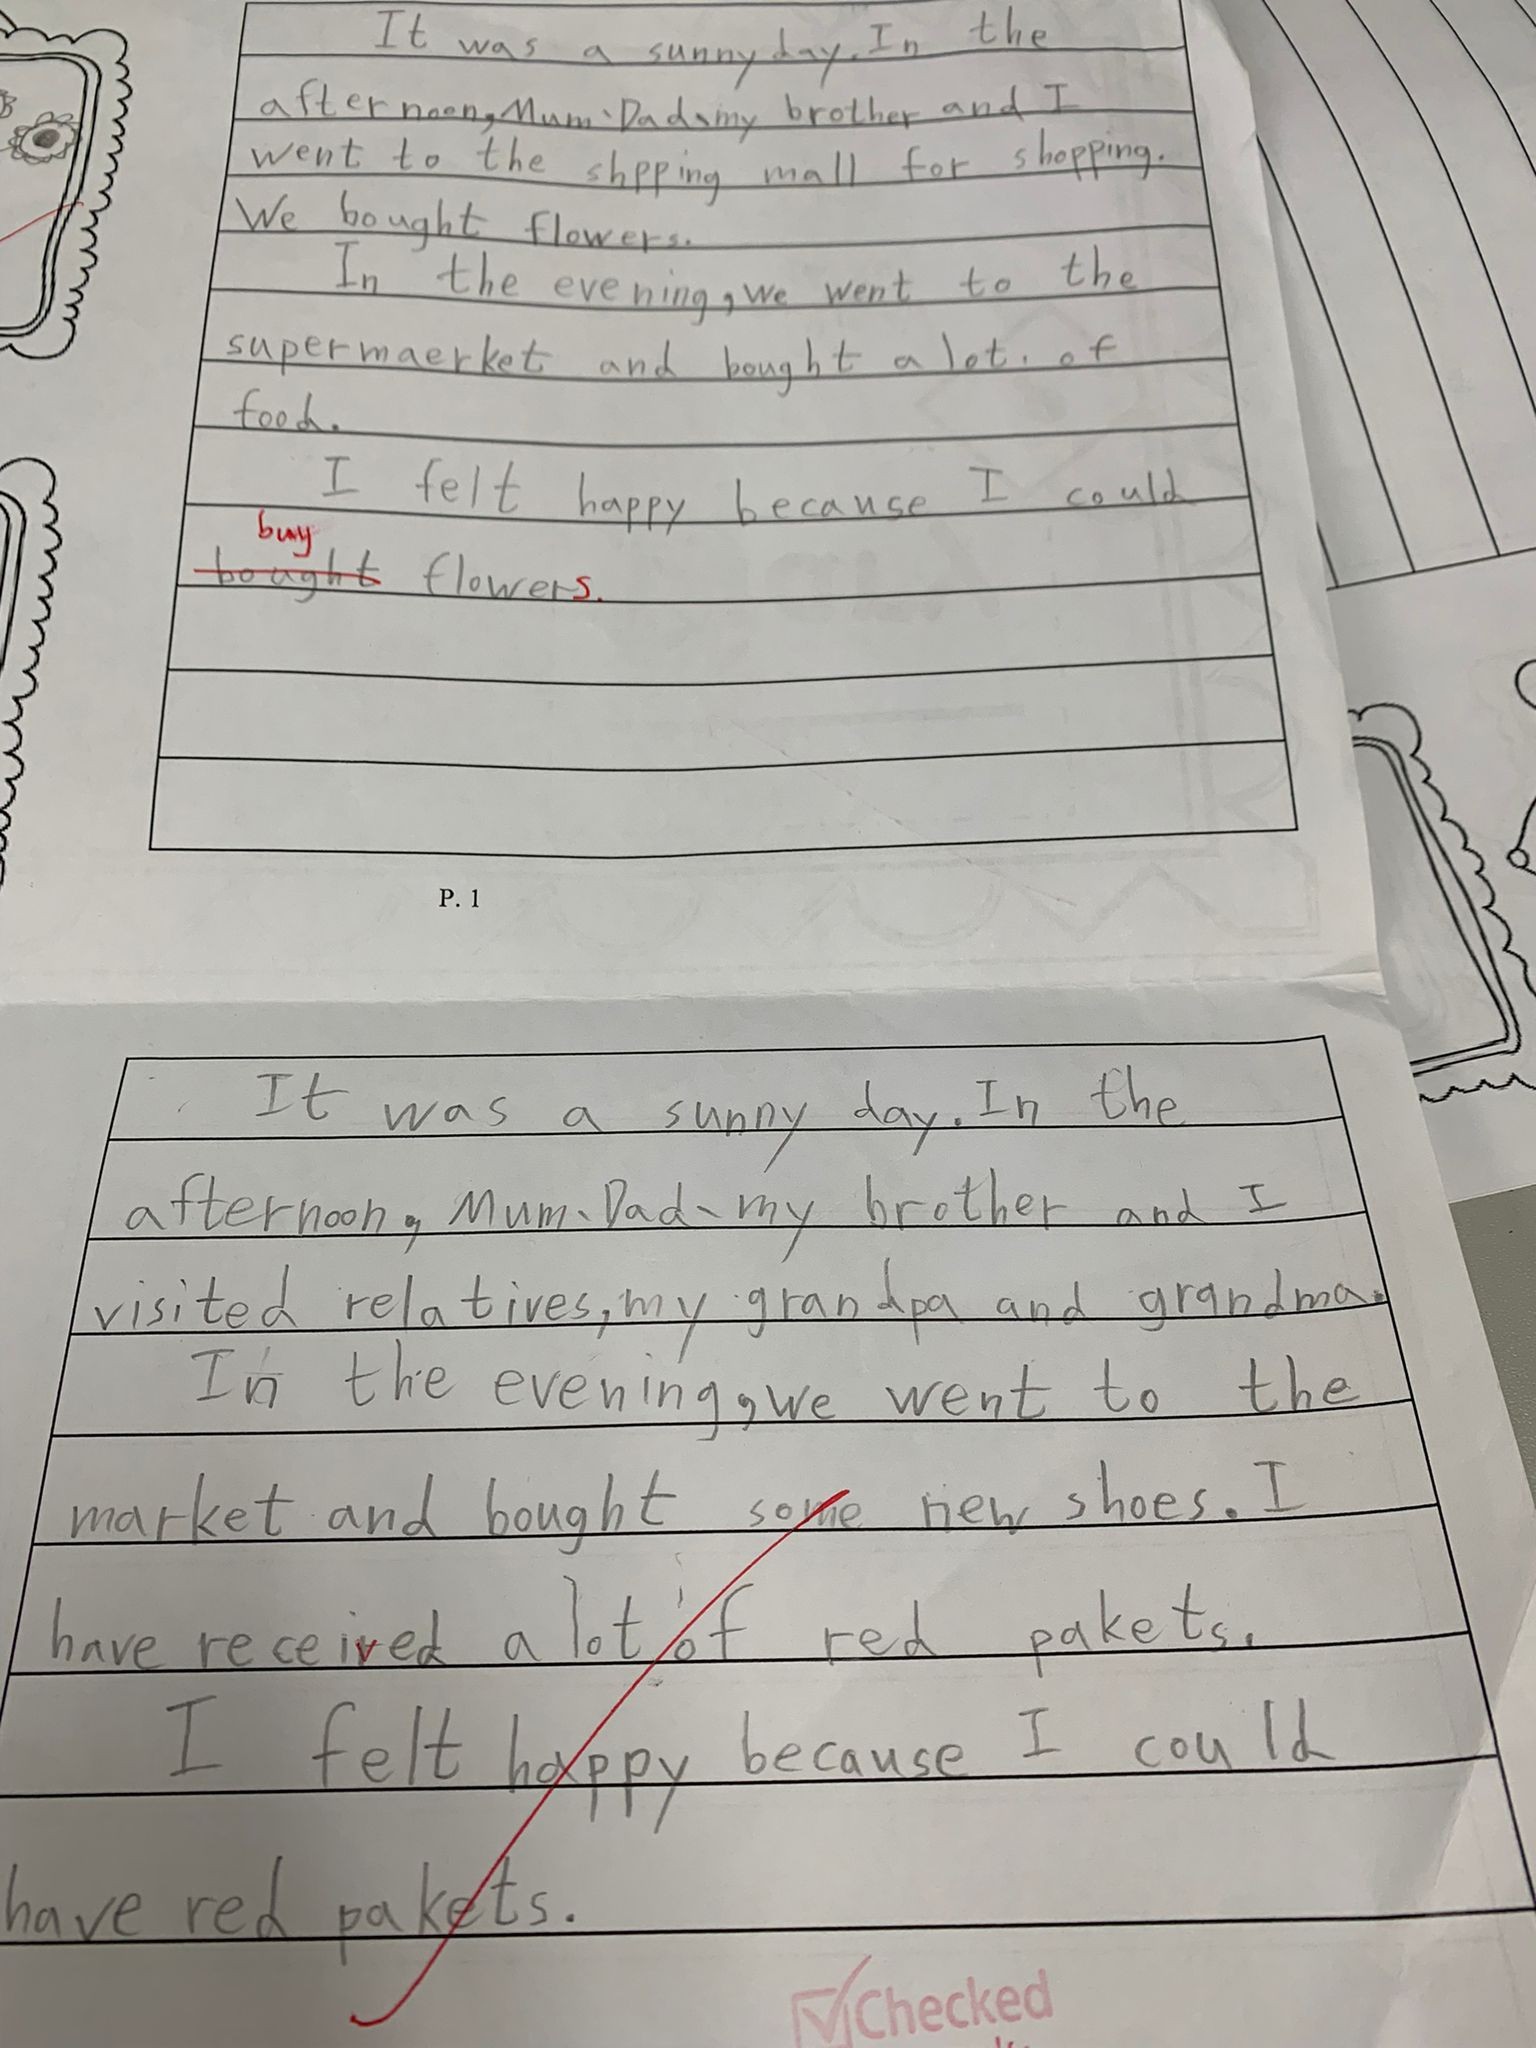 It was a sunny day. In the
afternoon, Mum、Dad、my brother and I
went to the shpping mall for shopping.
We bought flowers.
In the evening, we went to the
supermaerket and bought a lot of
food.
I felt happy because I could
buy
bought flowers.
P. 1
It was a sunny day. In the
afternoon, Mum、Dad、my brother and I
visited relatives, my grandpa and grandma.
In the evening, we went to the
market and bought some new shoes. I
have received a lot of red pakets.
I felt happy because I could
have red pakets.
Checked